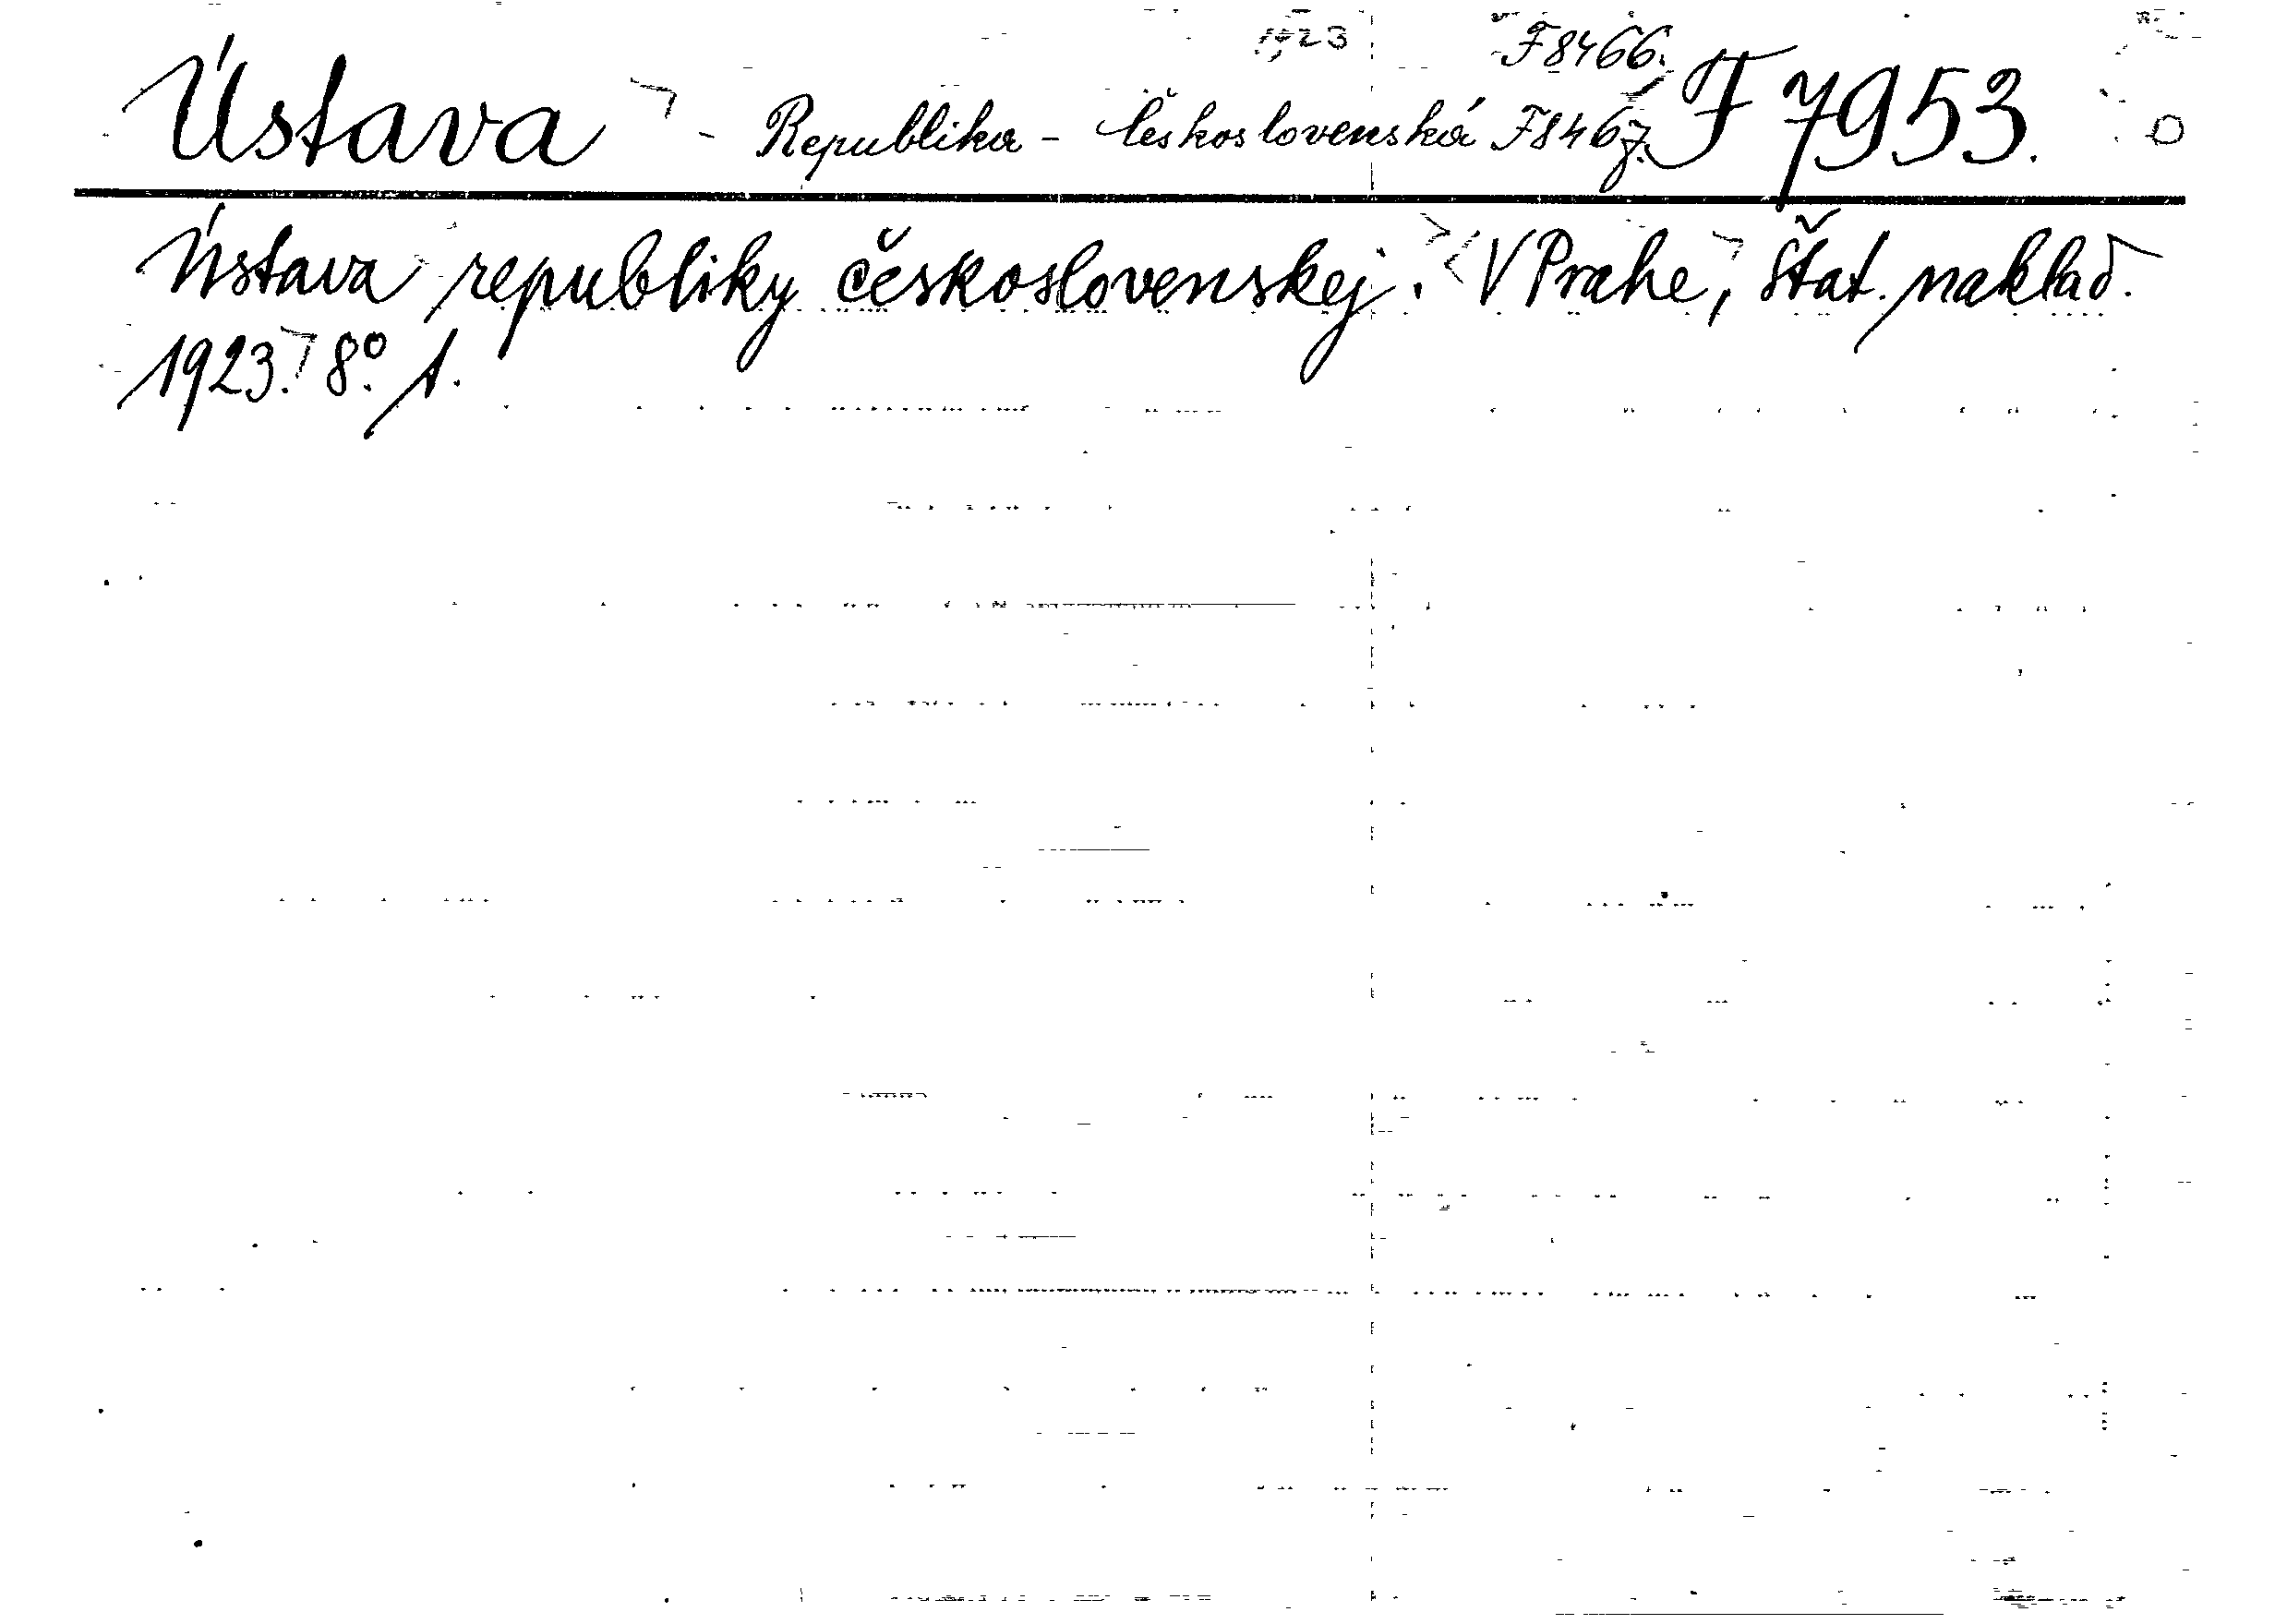 1923 F 8466.
Ústava - Republika - Československá F 8467. F 7953.
Ústava republiky československej. V Prahe, Štat. naklad.
1923. 8°. 1.